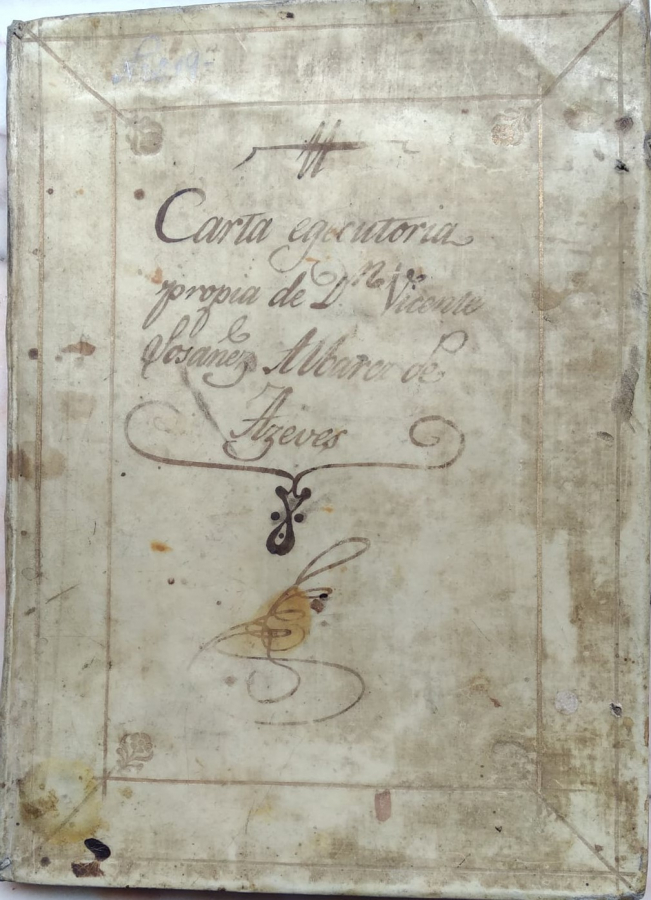 Carta egecutoria
propia de Dn Vicente
Sosañez Albarez de
Azeves